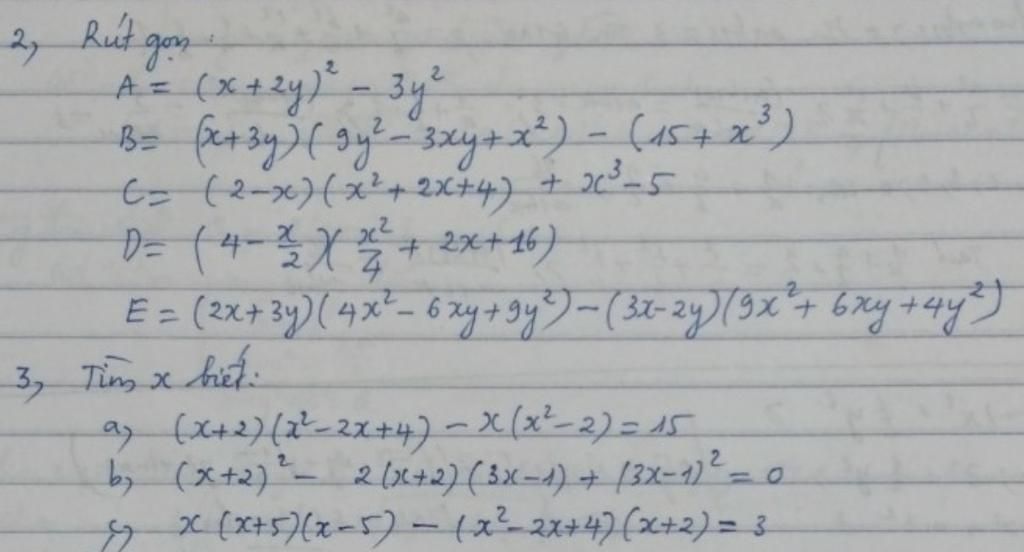 2, Rút gọn:
A = (x + 2y)² - 3y²
B = (x + 3y)(9y² - 3xy + x²) - (15 + x³)
C = (2 - x)(x² + 2x + 4) + x³ - 5
D = (4 - x/2)(x²/4 + 2x + 16)
E = (2x + 3y)(4x² - 6xy + 9y²) - (3x - 2y)(9x² + 6xy + 4y²)
3, Tìm x biết:
a, (x + 2)(x² - 2x + 4) - x(x² - 2) = 15
b, (x + 2)² - 2(x + 2)(3x - 1) + (3x - 1)² = 0
c, x(x + 5)(x - 5) - (x² - 2x + 4)(x + 2) = 3